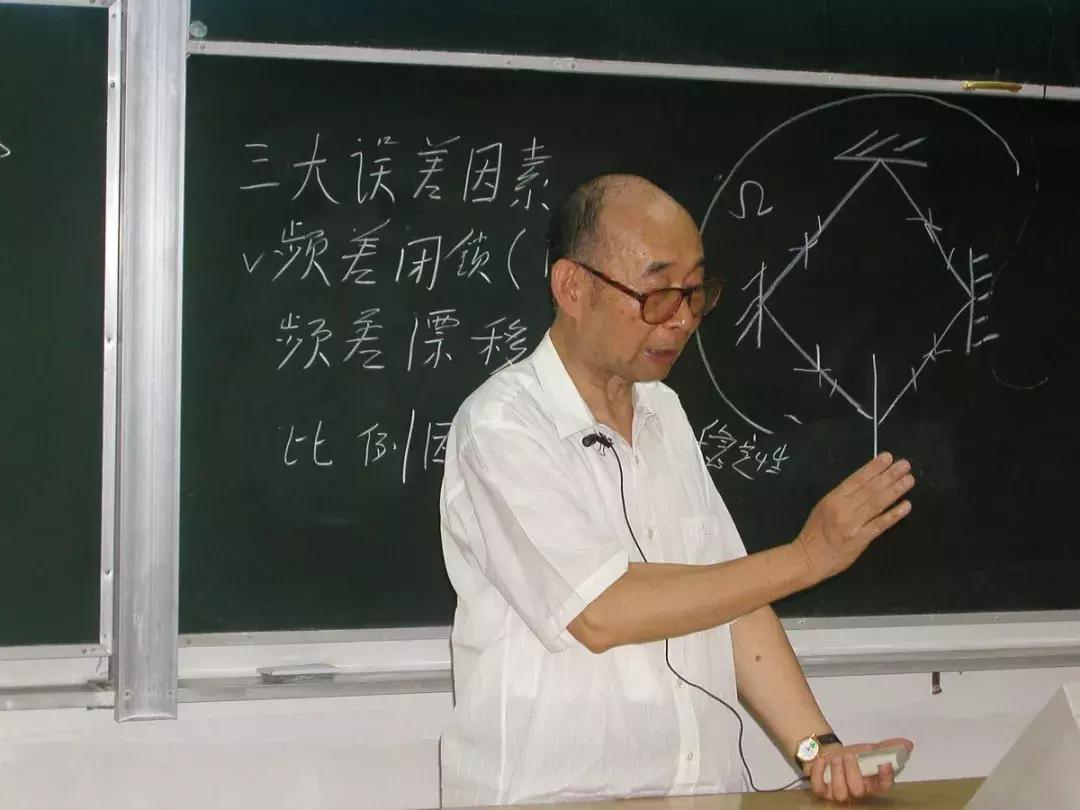 三大误差因素
√频差闭锁(
频差漂移
比例因 稳定性
Ω